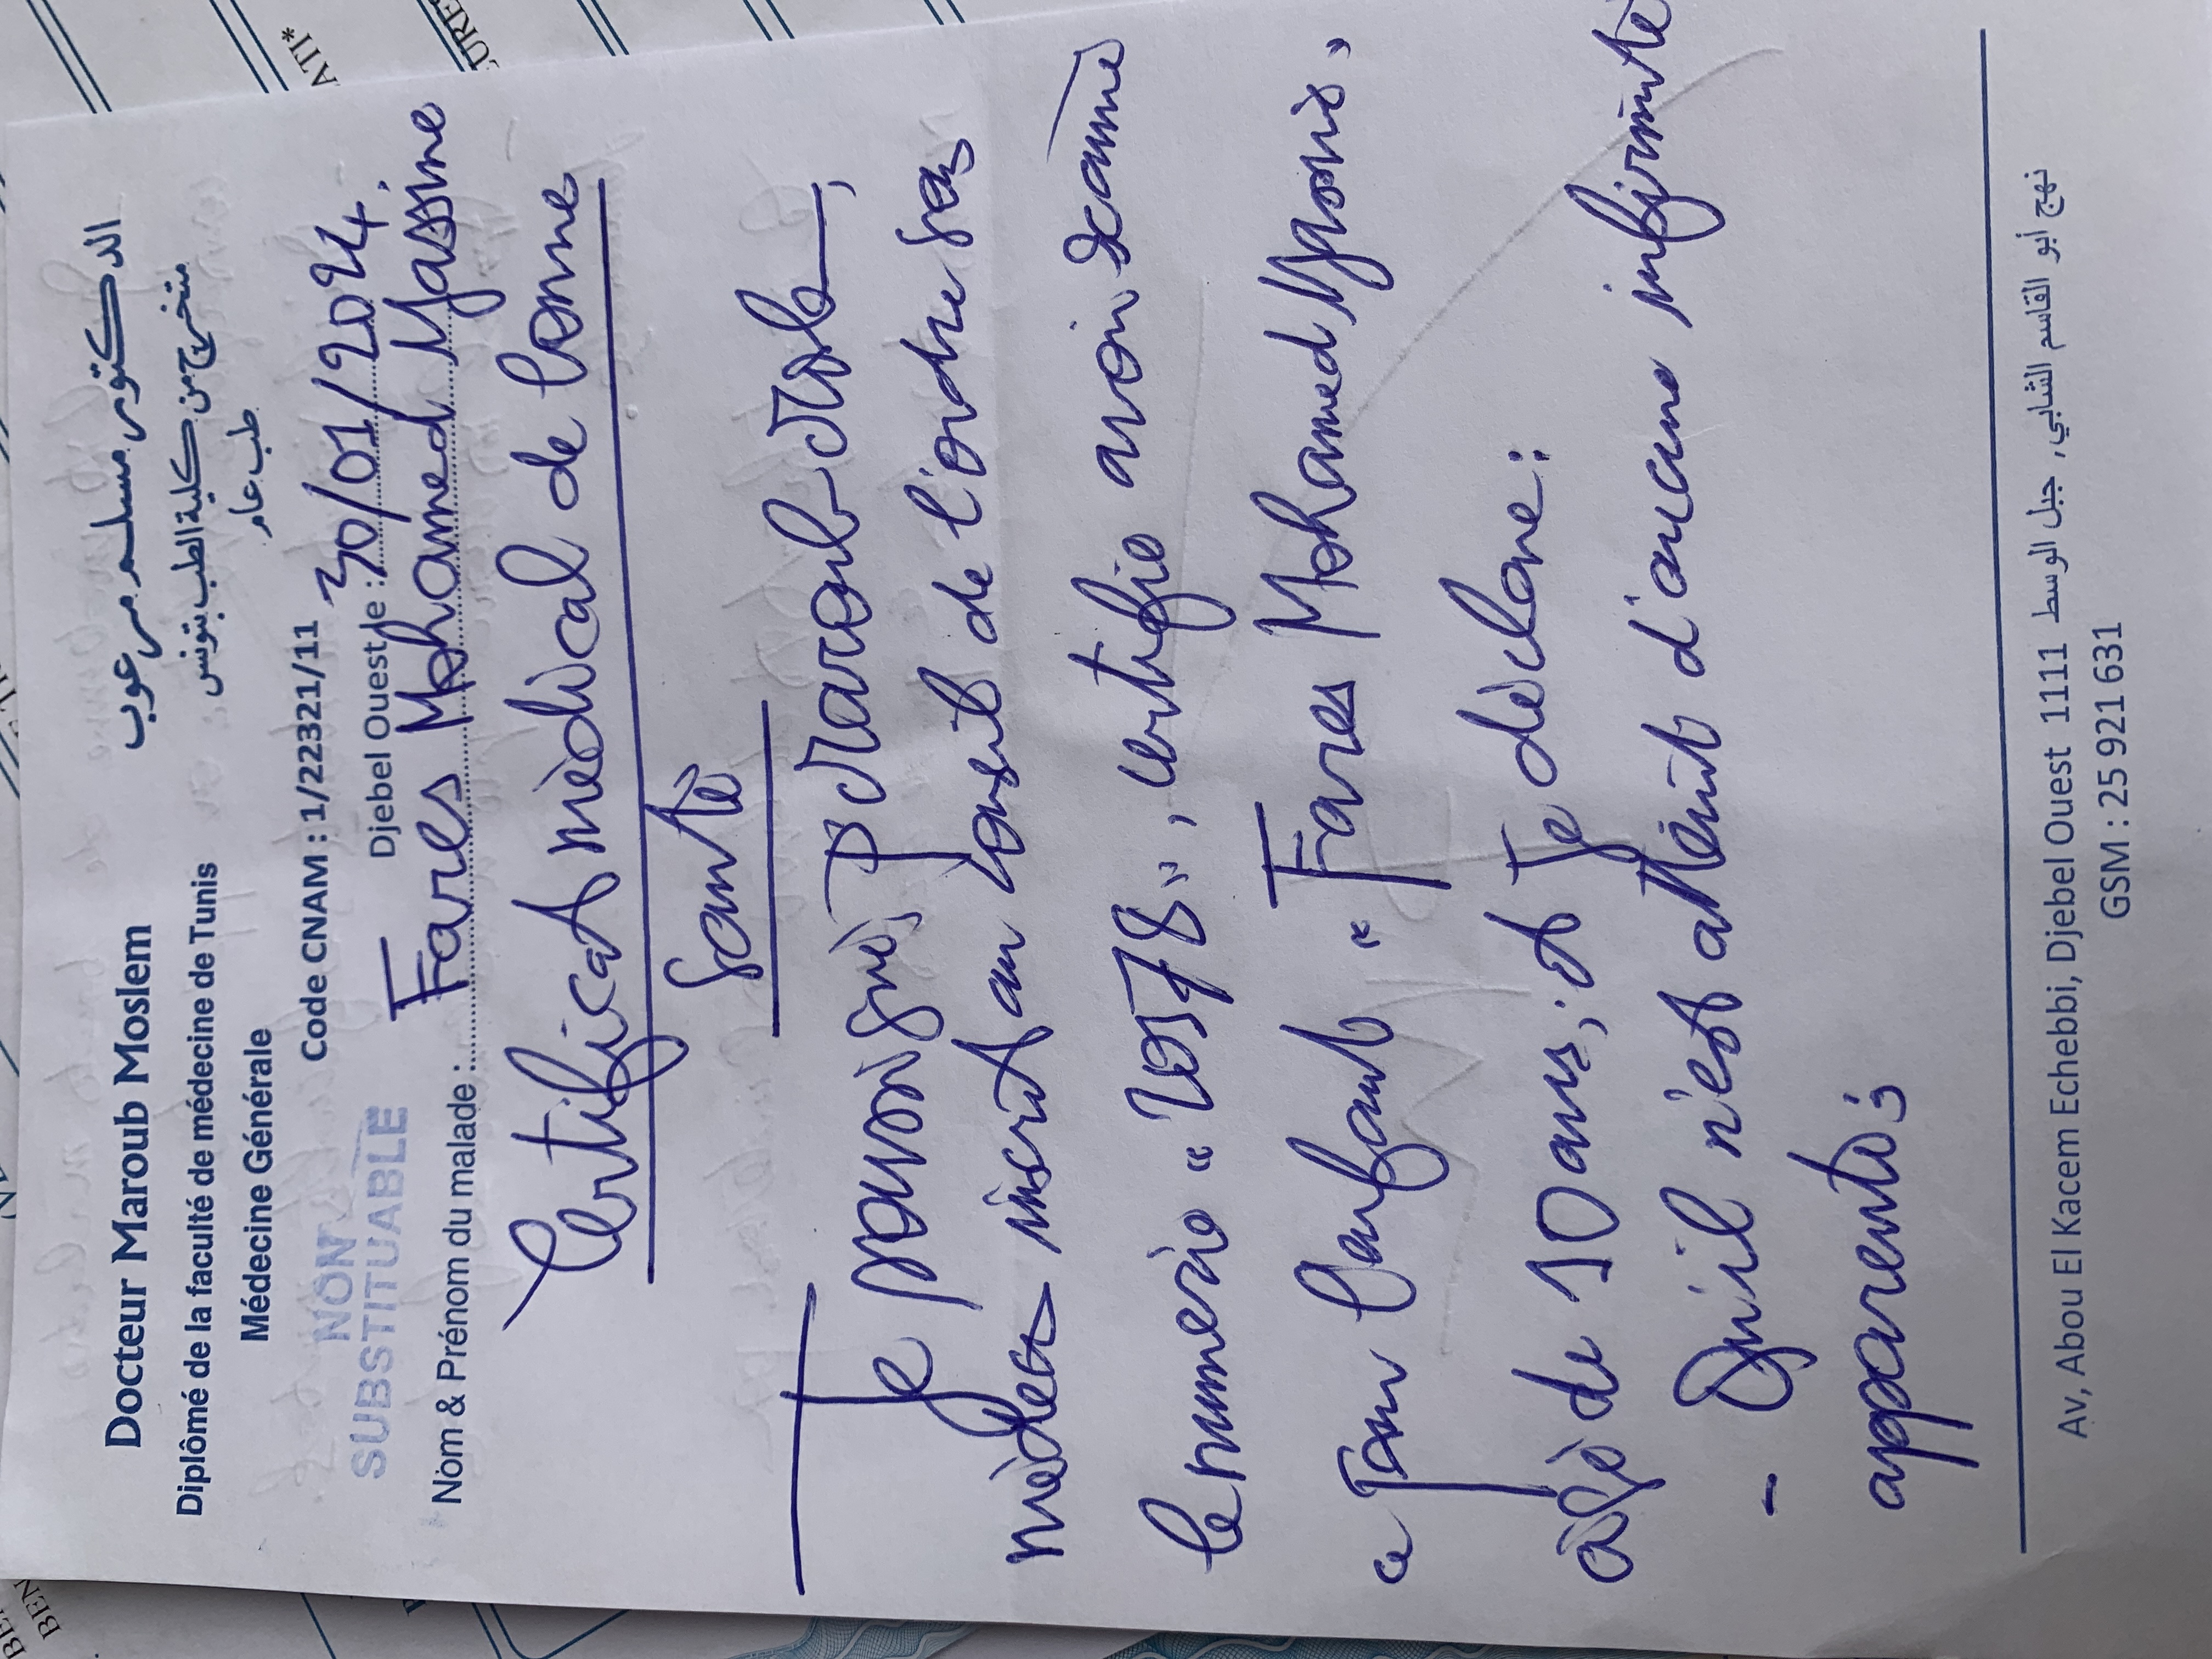 Docteur Maroub Moslem
الدكتور مسلم مرعوب
Diplômé de la faculté de médecine de Tunis
متخرج من كلية الطب بتونس
Médecine Générale
طب عام
Code CNAM : 1/22321/11
NON SUBSTITUABLE
Djebel Ouest le : 30/01/2024
Nom & Prénom du malade : Fares Mohamed Yassine
Certificat médical de bonne
santé
Je soussigné,
médecin inscrit au conseil de l'ordre sous
le numéro « 20578 », certifie avoir examiné
ce jour l'enfant « Fares Mohamed Yassine »
âgé de 10 ans, et Je déclare :
- Qu'il n'est atteint d'aucune infirmité
apparente ;
Av, Abou El Kacem Echebbi, Djebel Ouest 1111 نهج أبو القاسم الشابي, جبل الوسط
GSM : 25 921 631
ATI*
BEN